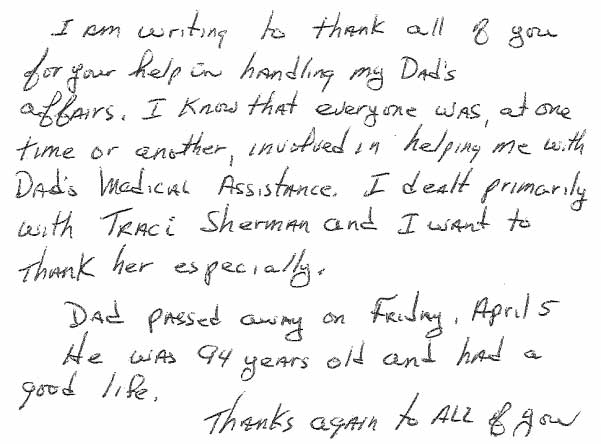 I am writing to thank all of you
for your help in handling my Dad's
affairs. I know that everyone was, at one
time or another, involved in helping me with
Dad's Medical Assistance. I dealt primarily
with Traci Sherman and I want to
thank her especially.
Dad passed away on Friday, April 5
He was 94 years old and had a
good life.
Thanks again to ALL of you